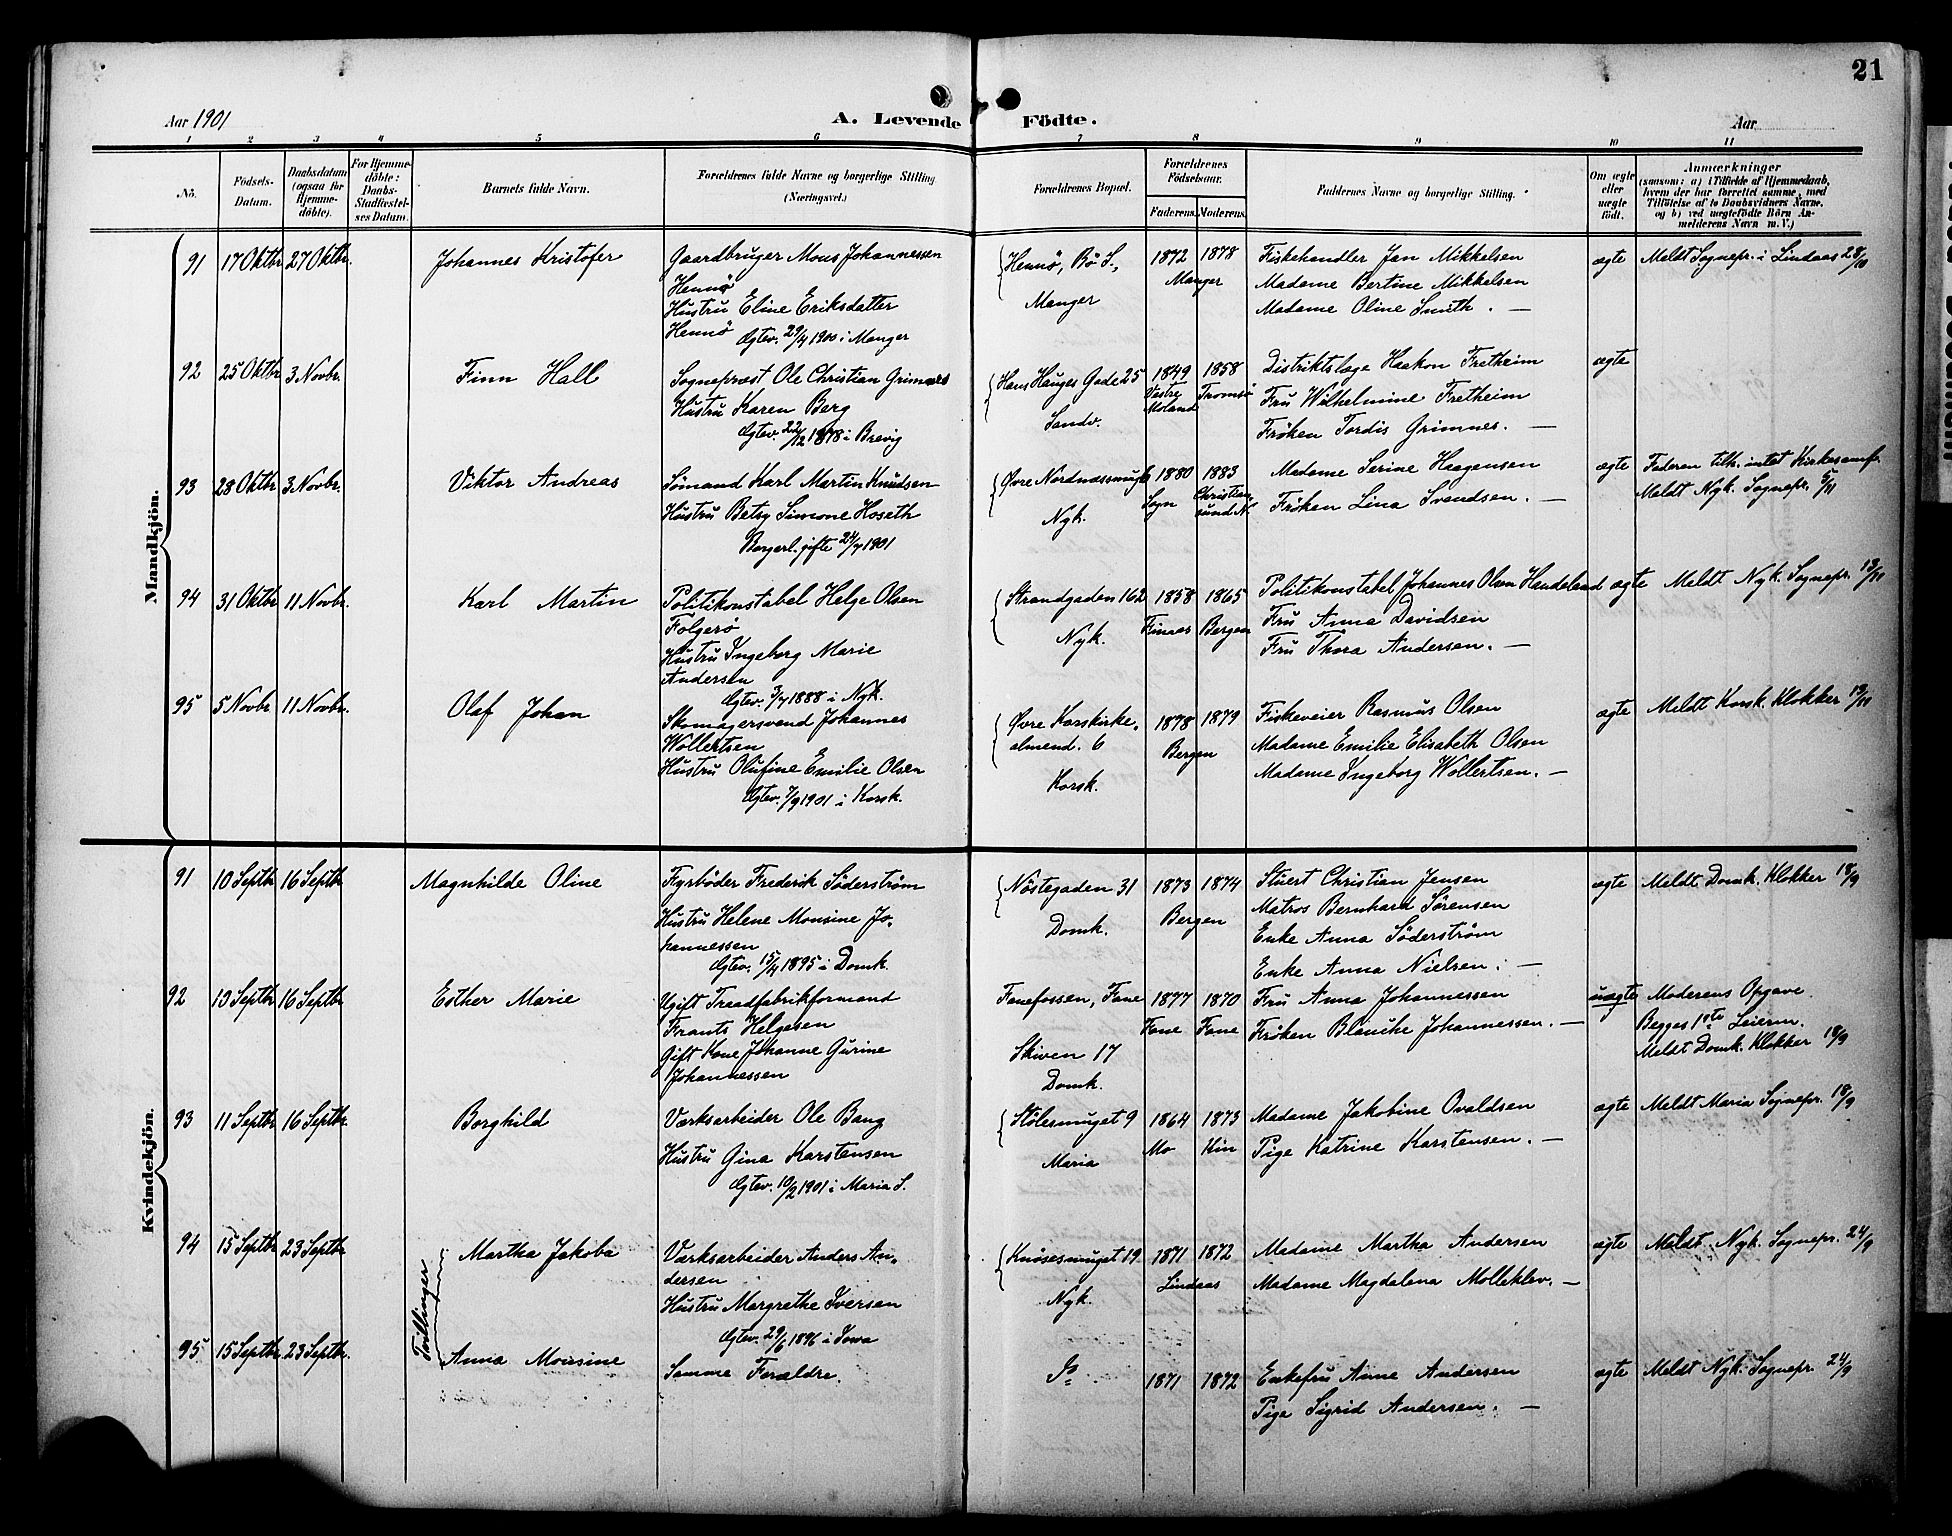 21
Aar 1901
A. Levende Födte.
Aar
1 2 3 4 5 6 7 8 9 10 11
No.
Födsels-
Datum.
Daabsdatum
(ogsaa for
Hjemme-
döbte).
For Hjemme-
döbte:
Daabs-
Stadfæstel-
ses Datum.
Barnets fulde Navn.
Forældrenes fulde Navne og borgerlige Stilling
(Næringsvei.)
Forældrenes Bopæl.
Forældrenes
Födselsaar.
Faderens. Moderens.
Faddernes Navne og borgerlige Stilling.
Om ægte
eller
uægte
födt.
Anmærkninger
(saasom: a) i Tilfælde af Hjemmedaab,
hvem der har forrettet samme, med
Tilföielse af to Daabsvidners Navne,
og b) ved uægtefödte Börn An-
melderens Navn m. V.)
Mandkjön.
91 17 Oktbr 27 Oktbr.
Johannes Kristofer
Gaardbruger Mons Johannessen
Hennö
Hustru Eline Eriksdatter
Hennö
Ægtev. 29/4 1900 i Manger
Hennö, Bö S.,
Manger
1872 1878
Manger
Fiskehandler Jan Mikkelsen
Madame Bertine Mikkelsen
Madame Oline Smith. —
ægte
Meldt Sognepr. i Lindaas 28/10
92 25 Oktbr 3 Novbr.
Finn Hall
Sogneprest Ole Christian Grimnes
Hustru Karen Berg
Ægtev. 22/12 1878 i Brevig
Hans Hauges Gade 25
Sandv.
1849 1858
Vestre Moland
Tromsö
Distriktslæge Haakon Fretheim
Fru Wilhelmine Fretheim
Frøken Tordis Grimnes. —
ægte
93 28 Oktbr 3 Novbr.
Viktor Andreas
Sömand Karl Martin Knudsen
Hustru Betsy Simone Hoseth
Borgerl. gifte 24/7 1901
Øvre Nordnæssmug 6
Nyk.
1880 1883
Sogn
Christian
sund N.
Madame Serine Haagensen
Frøken Lina Svendsen. —
ægte
Faderen tilh. intet Kirkesamf.
Meldt Nyk. Sognepr. 5/11
94 31 Oktbr 11 Novbr.
Karl Martin
Politikonstabel Helge Olsen
Folgerö
Hustru Ingeborg Marie
Andersen
Ægtev. 3/7 1888 i Nyk.
Strandgaden 162
Nyk.
1858 1865
Finnas Bergen
Politikonstabel Johannes Olsen Handeland
Fru Anna Davidsen
Fru Thora Andersen. —
ægte
Meldt Nyk. Sognepr. 13/11
95 5 Novbr 11 Novbr.
Olaf Johan
Skomagersvend Johannes
Wollertsen
Hustru Olufine Emilie Olsen
Ægtev. 7/9 1901 i Korsk.
Øvre Korskirke-
almend. 6
Korsk.
1878 1879
Bergen
Fiskeveier Rasmus Olsen
Madame Emilie Elisabeth Olsen
Madame Ingeborg Wollertsen. —
ægte
Meldt Korsk. Klokker 13/11
Kvindekjön.
91 10 Septbr 16 Septbr
Magnhilde Oline
Fyrböder Frederik Söderström
Hustru Helene Monsine Jo-
hannessen
Ægtev. 15/4 1895 i Domk.
Nöstegaden 31
Domk.
1873 1874
Bergen
Stuert Christian Jensen
Matros Bernhard Sörensen
Enke Anna Söderström
Enke Anna Nielsen. —
ægte
Meldt Domk. Klokker 18/9
92 13 Septbr 16 Septbr
Esther Marie
Ugift Traadfabrikformand
Frants Helgesen
Gift Kone Johanne Gurine
Johannessen
Fanefossen, Fane
Skiven 17
Domk.
1877 1870
Fane Fane
Fru Anna Johannessen
Frøken Blanche Johannessen. —
uægte
Moderens Opgave.
Begges 1ste Leierm.
Meldt Domk. Klokker 18/9
93 11 Septbr 16 Septbr.
Borghild
Værksarbeider Ole Bang
Hustru Gina Karstensen
Ægtev. 10/2 1901 i Maria S.
Stölesmuget 9
Maria
1864 1873
Mo Kin
Madame Jakobine Ovaldsen
Pige Katrine Karstensen. —
ægte
Meldt Maria Sognepr. 18/9
94 15 Septbr 23 Septbr
Tvillinger
Martha Jakoba
Værksarbeider Anders An-
dersen
Hustru Margrethe Iversen
Ægtev. 29/6 1896 i Iowa
Knösesmuget 19
Nyk.
1871 1872
Lindaas
Madame Martha Andersen
Madame Magdalena Molleklev. —
ægte
Meldt Nyk. Sognepr. 24/9
95 15 Septbr 23 Septbr.
Anna Monsine
Samme Forældre.
1871 1872
Enkefru Anne Andersen
Pige Sigrid Andersen. —
ægte
Meldt Nyk. Sognepr. 24/9